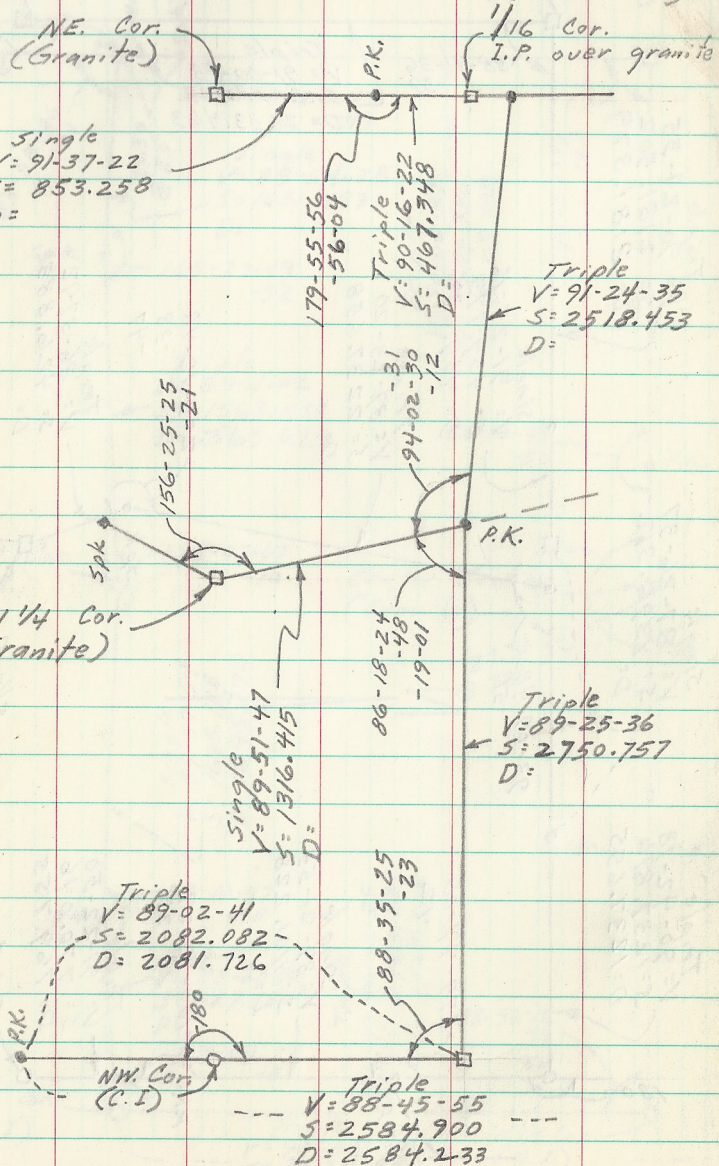 NE. Cor.
(Granite)
P.K.
1/16 Cor.
I.P. over granite
Single
V= 91-37-22
= 853.258
=
179-55-56
-56-04
Triple
V= 90-16-22
S= 467.348
D=
Triple
V= 91-24-35
S= 2518.453
D=
-31
94-02-30
-12
156-25-25
-21
Spk
P.K.
1/4 Cor.
ranite)
86-18-24
-48
-19-01
Single
V= 89-51-47
S= 1316.415
D=
Triple
V= 89-25-36
S= 2750.757
D=
Triple
V= 89-02-41
S= 2082.082
D= 2081.726
88-35-25
-23
P.K.
-180
NW. Cor.
(C.I)
Triple
V= 88-45-55
S= 2584.900
D= 2584.233